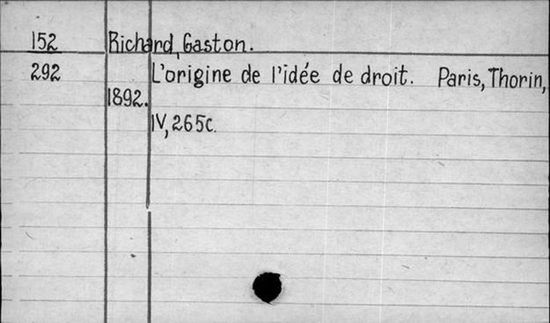 152 Richard, Gaston.
292 L'origine de l'idée de droit. Paris, Thorin,
1892.
IV, 265c.